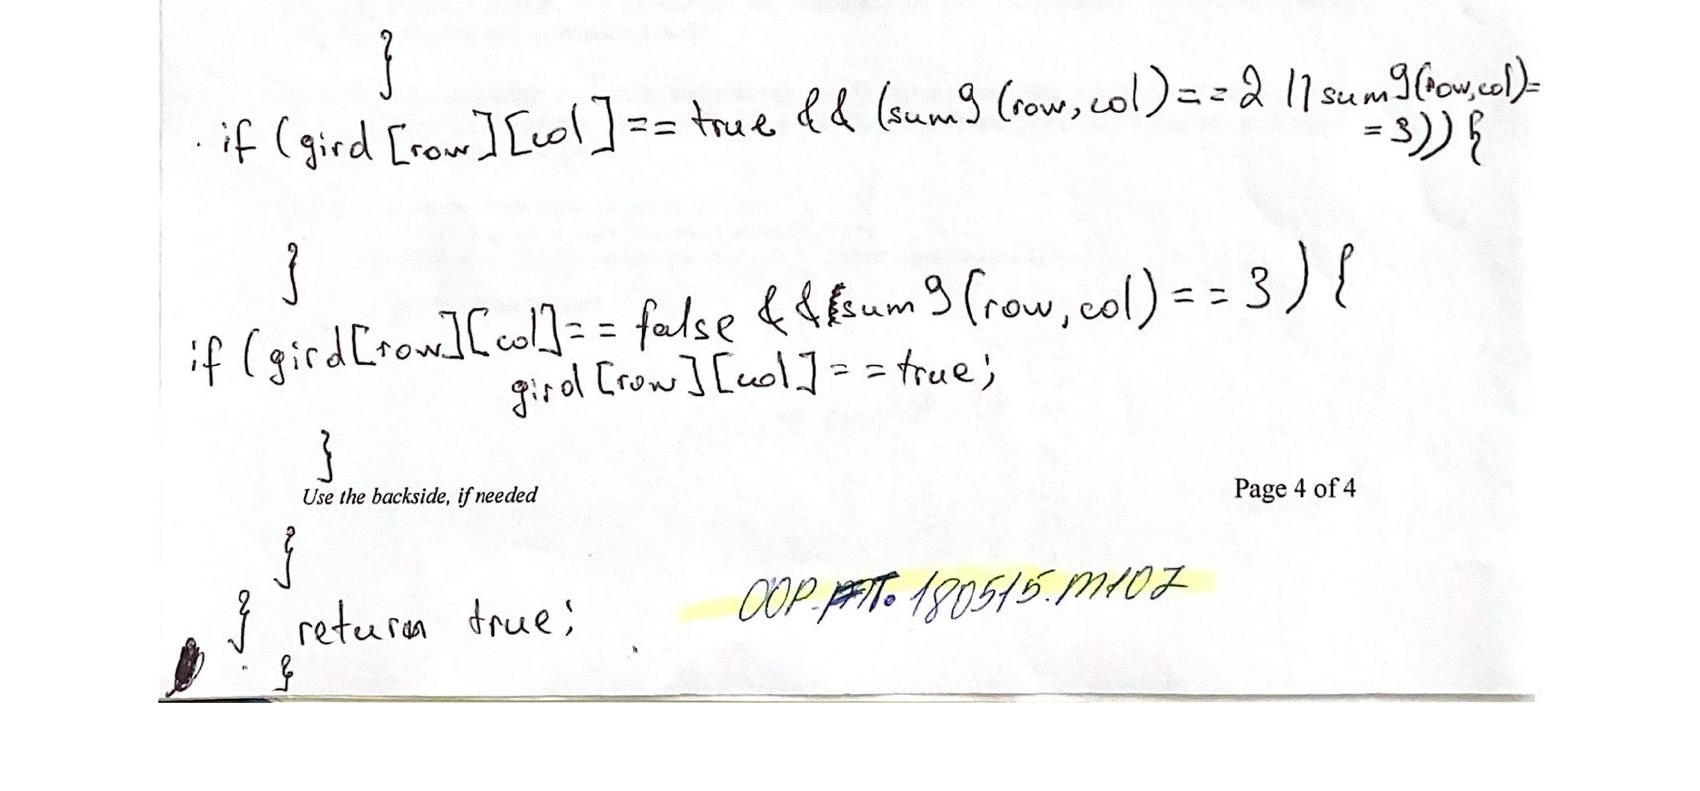 }
if (gird [row][col] == true && (sum9 (row, col) == 2 || sum9(row,col)=
= 3)) {
}
if (gird[row][col] == false && sum9 (row, col) == 3) {
gird [row][col] == true;
}
Use the backside, if needed
Page 4 of 4
}
} return true;
OOP. 180515.M107
}